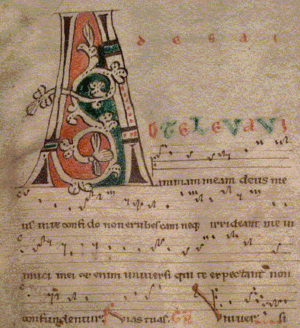 A d e g a i
D te levavi
animam meam deus me
us in te confido non erubescam neq irrideant me in
imici mei et enim universi qui te expectant non
confundentur. Vias tuas. GR Univer si